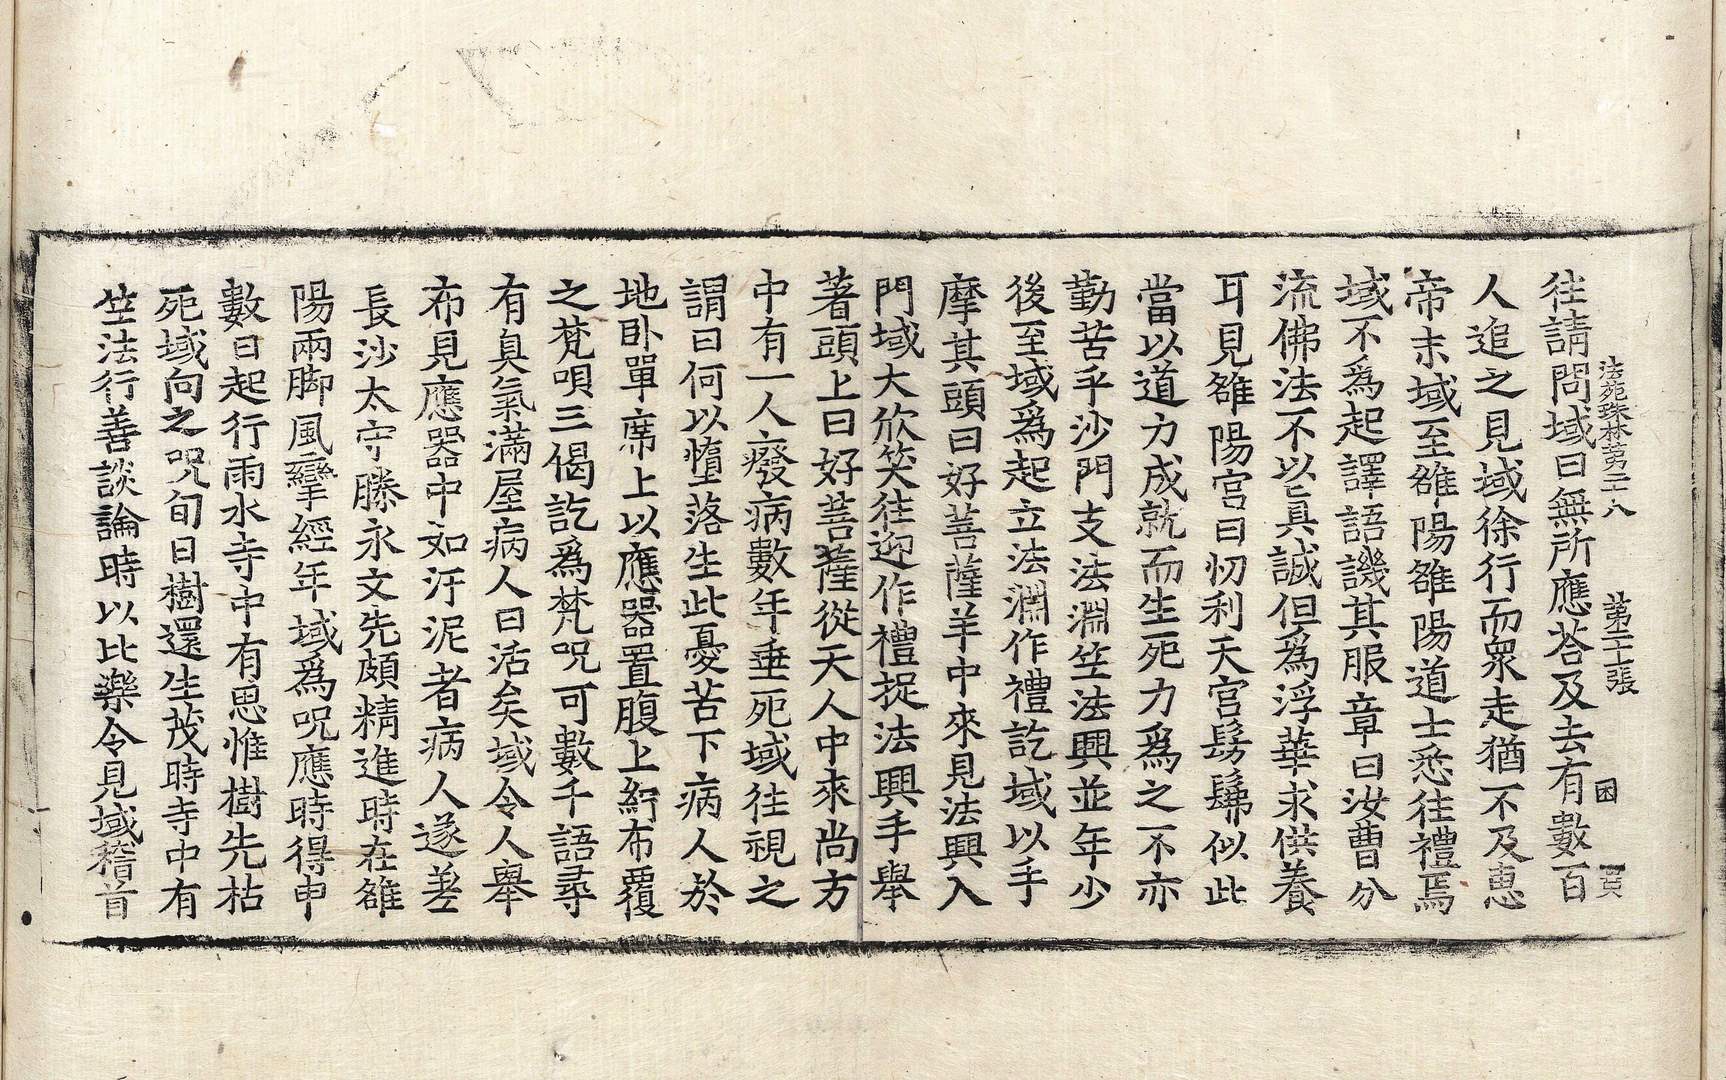 法苑珠林第二十八 第二十張 困
往請問域曰無所應荅及去有數百
人追之見域徐行而衆走猶不及惠
帝末域至雒陽雒陽道士悉往禮焉
域不爲起譯語譏其服章曰汝曹分
流佛法不以真誠但爲浮華求供養
耳見雒陽宮曰忉利天宮髣髴似此
當以道力成就而生死力爲之不亦
勤苦乎沙門支法淵竺法興並年少
後至域爲起立法淵作禮訖域以手
摩其頭曰好菩薩羊中來見法興入
門域大欣笑往迎作禮捉法興手舉
著頭上曰好菩薩從天人中來尚方
中有一人癈病數年垂死域往視之
謂曰何以墮落生此憂苦下病人於
地卧單席上以應器置腹上紵布覆
之梵唄三偈訖爲梵呪可數千語尋
有臭氣滿屋病人曰活矣域令人舉
布見應器中如汙泥者病人遂差
長沙太守滕永文先頗精進時在雒
陽兩脚風攣經年域爲呪應時得申
數日起行雨水寺中有思惟樹先枯
死域向之呪旬日樹還生茂時寺中有
竺法行善談論時以比樂令見域稽首